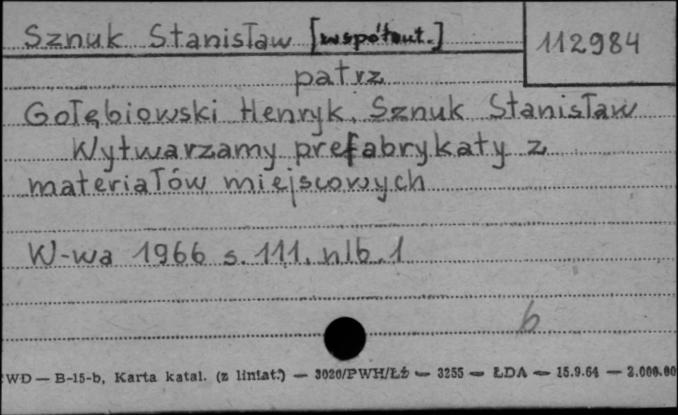 Sznuk Stanisław [współaut.]
112984
patrz
Gołębiowski Henryk, Sznuk Stanisław
Wytwarzamy prefabrykaty z
materiałów miejscowych
W-wa 1966 s. 111. nlb. 1
b
WD — B-15-b, Karta katal. (z liniat.) — 3020/PWH/Łź — 3255 — ŁDA — 15.9.64 — 2.000.00